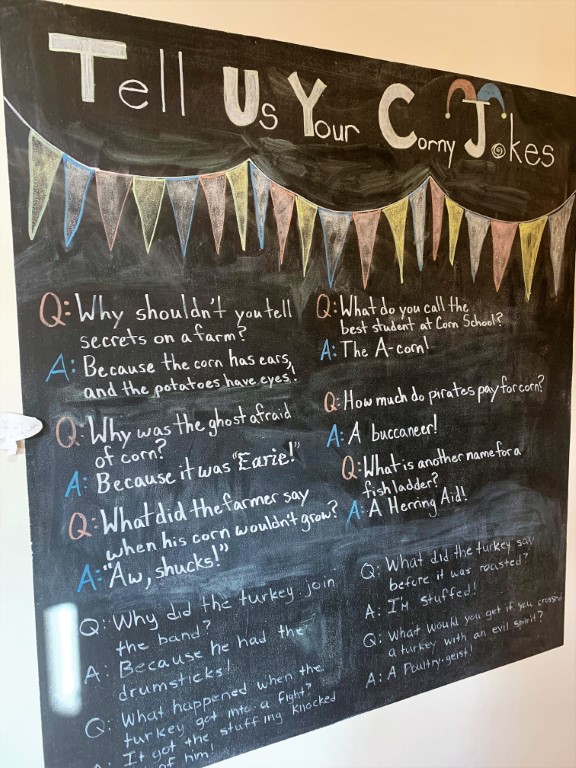 Tell Us Your Corny Jokes
Q: Why shouldn't you tell
secrets on a farm?
A: Because the corn has ears,
and the potatoes have eyes!
Q: Why was the ghost afraid
of corn?
A: Because it was "Earie!"
Q: What did the farmer say
when his corn wouldn't grow?
A: "Aw, shucks!"
Q: Why did the turkey join
the band?
A: Because he had the
drumsticks!
Q: What happened when the
turkey got into a fight?
A: It got the stuffing knocked
of him!
Q: What do you call the
best student at Corn School?
A: The A-corn!
Q: How much do pirates pay for corn?
A: A buccaneer!
Q: What is another name for a
fish ladder?
A: A Herring Aid!
Q: What did the turkey say
before it was roasted?
A: I'M stuffed!
Q: What would you get if you crossed
a turkey with an evil spirit?
A: A Poultry-geist!